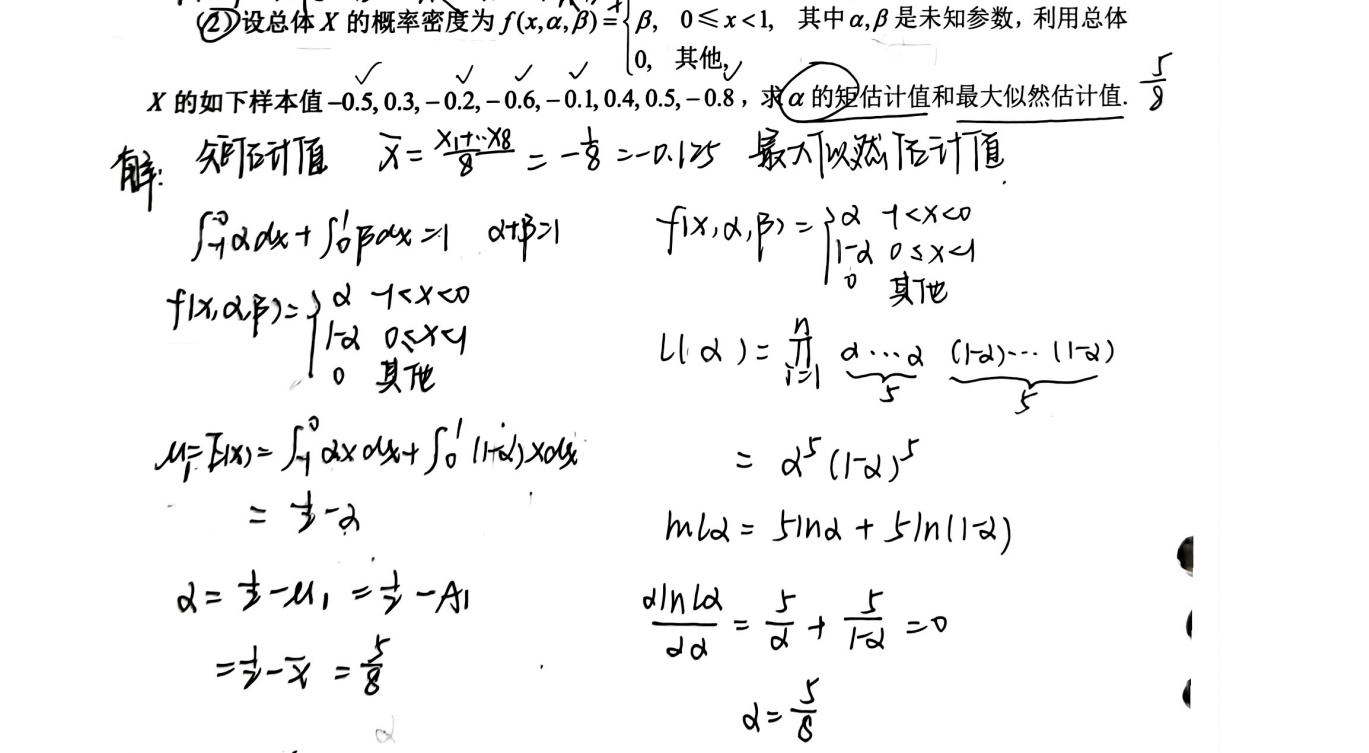 (2) 设总体 X 的概率密度为 f(x,α,β)={β, 0≤x<1, 其中α,β是未知参数, 利用总体
0, 其他,
X 的如下样本值 -0.5, 0.3, -0.2, -0.6, -0.1, 0.4, 0.5, -0.8, 求α的矩估计值和最大似然估计值. 5/8
解: 矩估计值 x̄ = (x1+…x8)/8 = -1/8 = -0.125 最大似然估计值.
∫_{-1}^{0} α dx + ∫_{0}^{1} β dx = 1 α+β=1
f(x,α,β) = { α -1<x<0
1-α 0≤x<1
0 其他
μ1=E(x) = ∫_{-1}^{0} αx dx + ∫_{0}^{1} (1-α)x dx
= 1/2 - α
α = 1/2 - μ1 = 1/2 - A1
= 1/2 - x̄ = 5/8
α
f(x,α,β) = { α -1<x<0
1-α 0≤x<1
0 其他
L(α) = ∏_{i=1}^{n} α…α (1-α)…(1-α)
5 5
= α^5 (1-α)^5
lnLα = 5lnα + 5ln(1-α)
dlnLα/dα = 5/α + 5/(1-α) = 0
α = 5/8